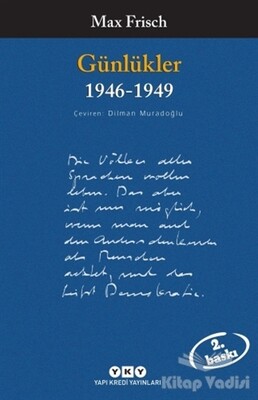 Max Frisch
Günlükler
1946-1949
Çeviren: Dilman Muradoğlu
Die Völker aller
Sprachen wollen
leben. Das aber
ist nur möglich,
wenn man auch
den Andersdenkenden
als Menschen
achtet, und das
heißt Demokratie.
2.
baskı
YKY
YAPI KREDİ YAYINLARI
Kitap Vadisi